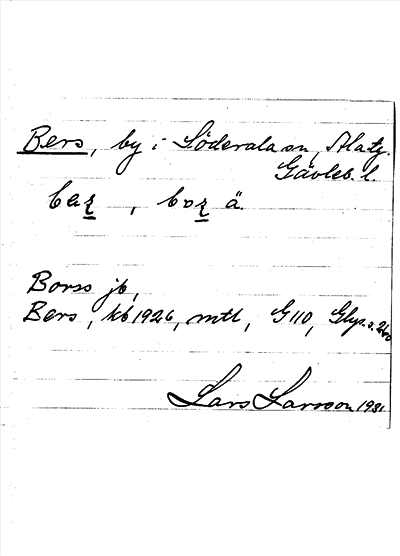 Bers, by i Söderala sn, Ala tg.
Gävleb. l.
bar, bor ä.
Borss jb,
Bers, kb 1926, mtl, G110, Glyp. s. 260
Lars Larsson 1931